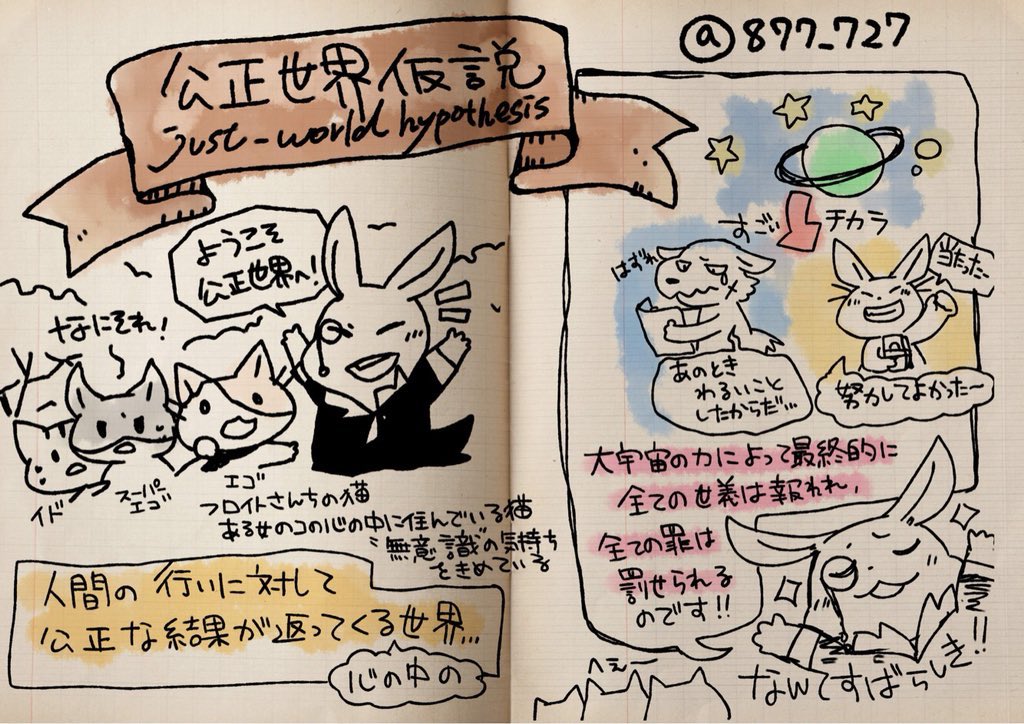 公正世界仮説
just-world hypothesis
@877_727
ようこそ
公正世界へ!
なにそれ!
イド
スーパー
エゴ
エゴ
フロイトさんちの猫
ある女のコの心の中に住んでいる猫
"無意識"の気持ち
をきめている
人間の行いに対して
公正な結果が返ってくる世界...
心の中の
すごい チカラ
はずれ
当たった〜
あのとき
わるいこと
したからだ...
努力してよかった〜
大宇宙の力によって最終的に
全ての正義は報われ、
全ての罪は
罰せられる
のです!!
へぇー
なんてすばらしき!!